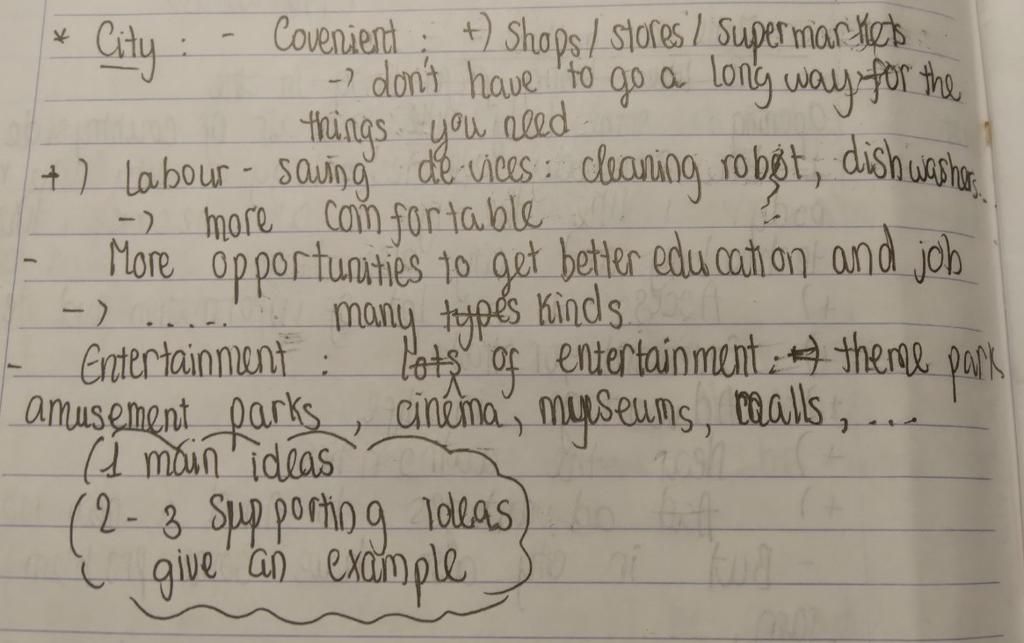 * City : - Covenient : +) Shops / stores / supermarkets
-> don't have to go a long way for the
things you need
+) Labour - saving devices : cleaning robot, dishwashers...
-> more comfortable
- More opportunities to get better education and job
-> ..... many types kinds
- Entertainment : lots of entertainment : -> theme park
amusement parks, cinema, myseums, malls, ...
(1 main ideas
(2 - 3 supporting ideas
( give an example